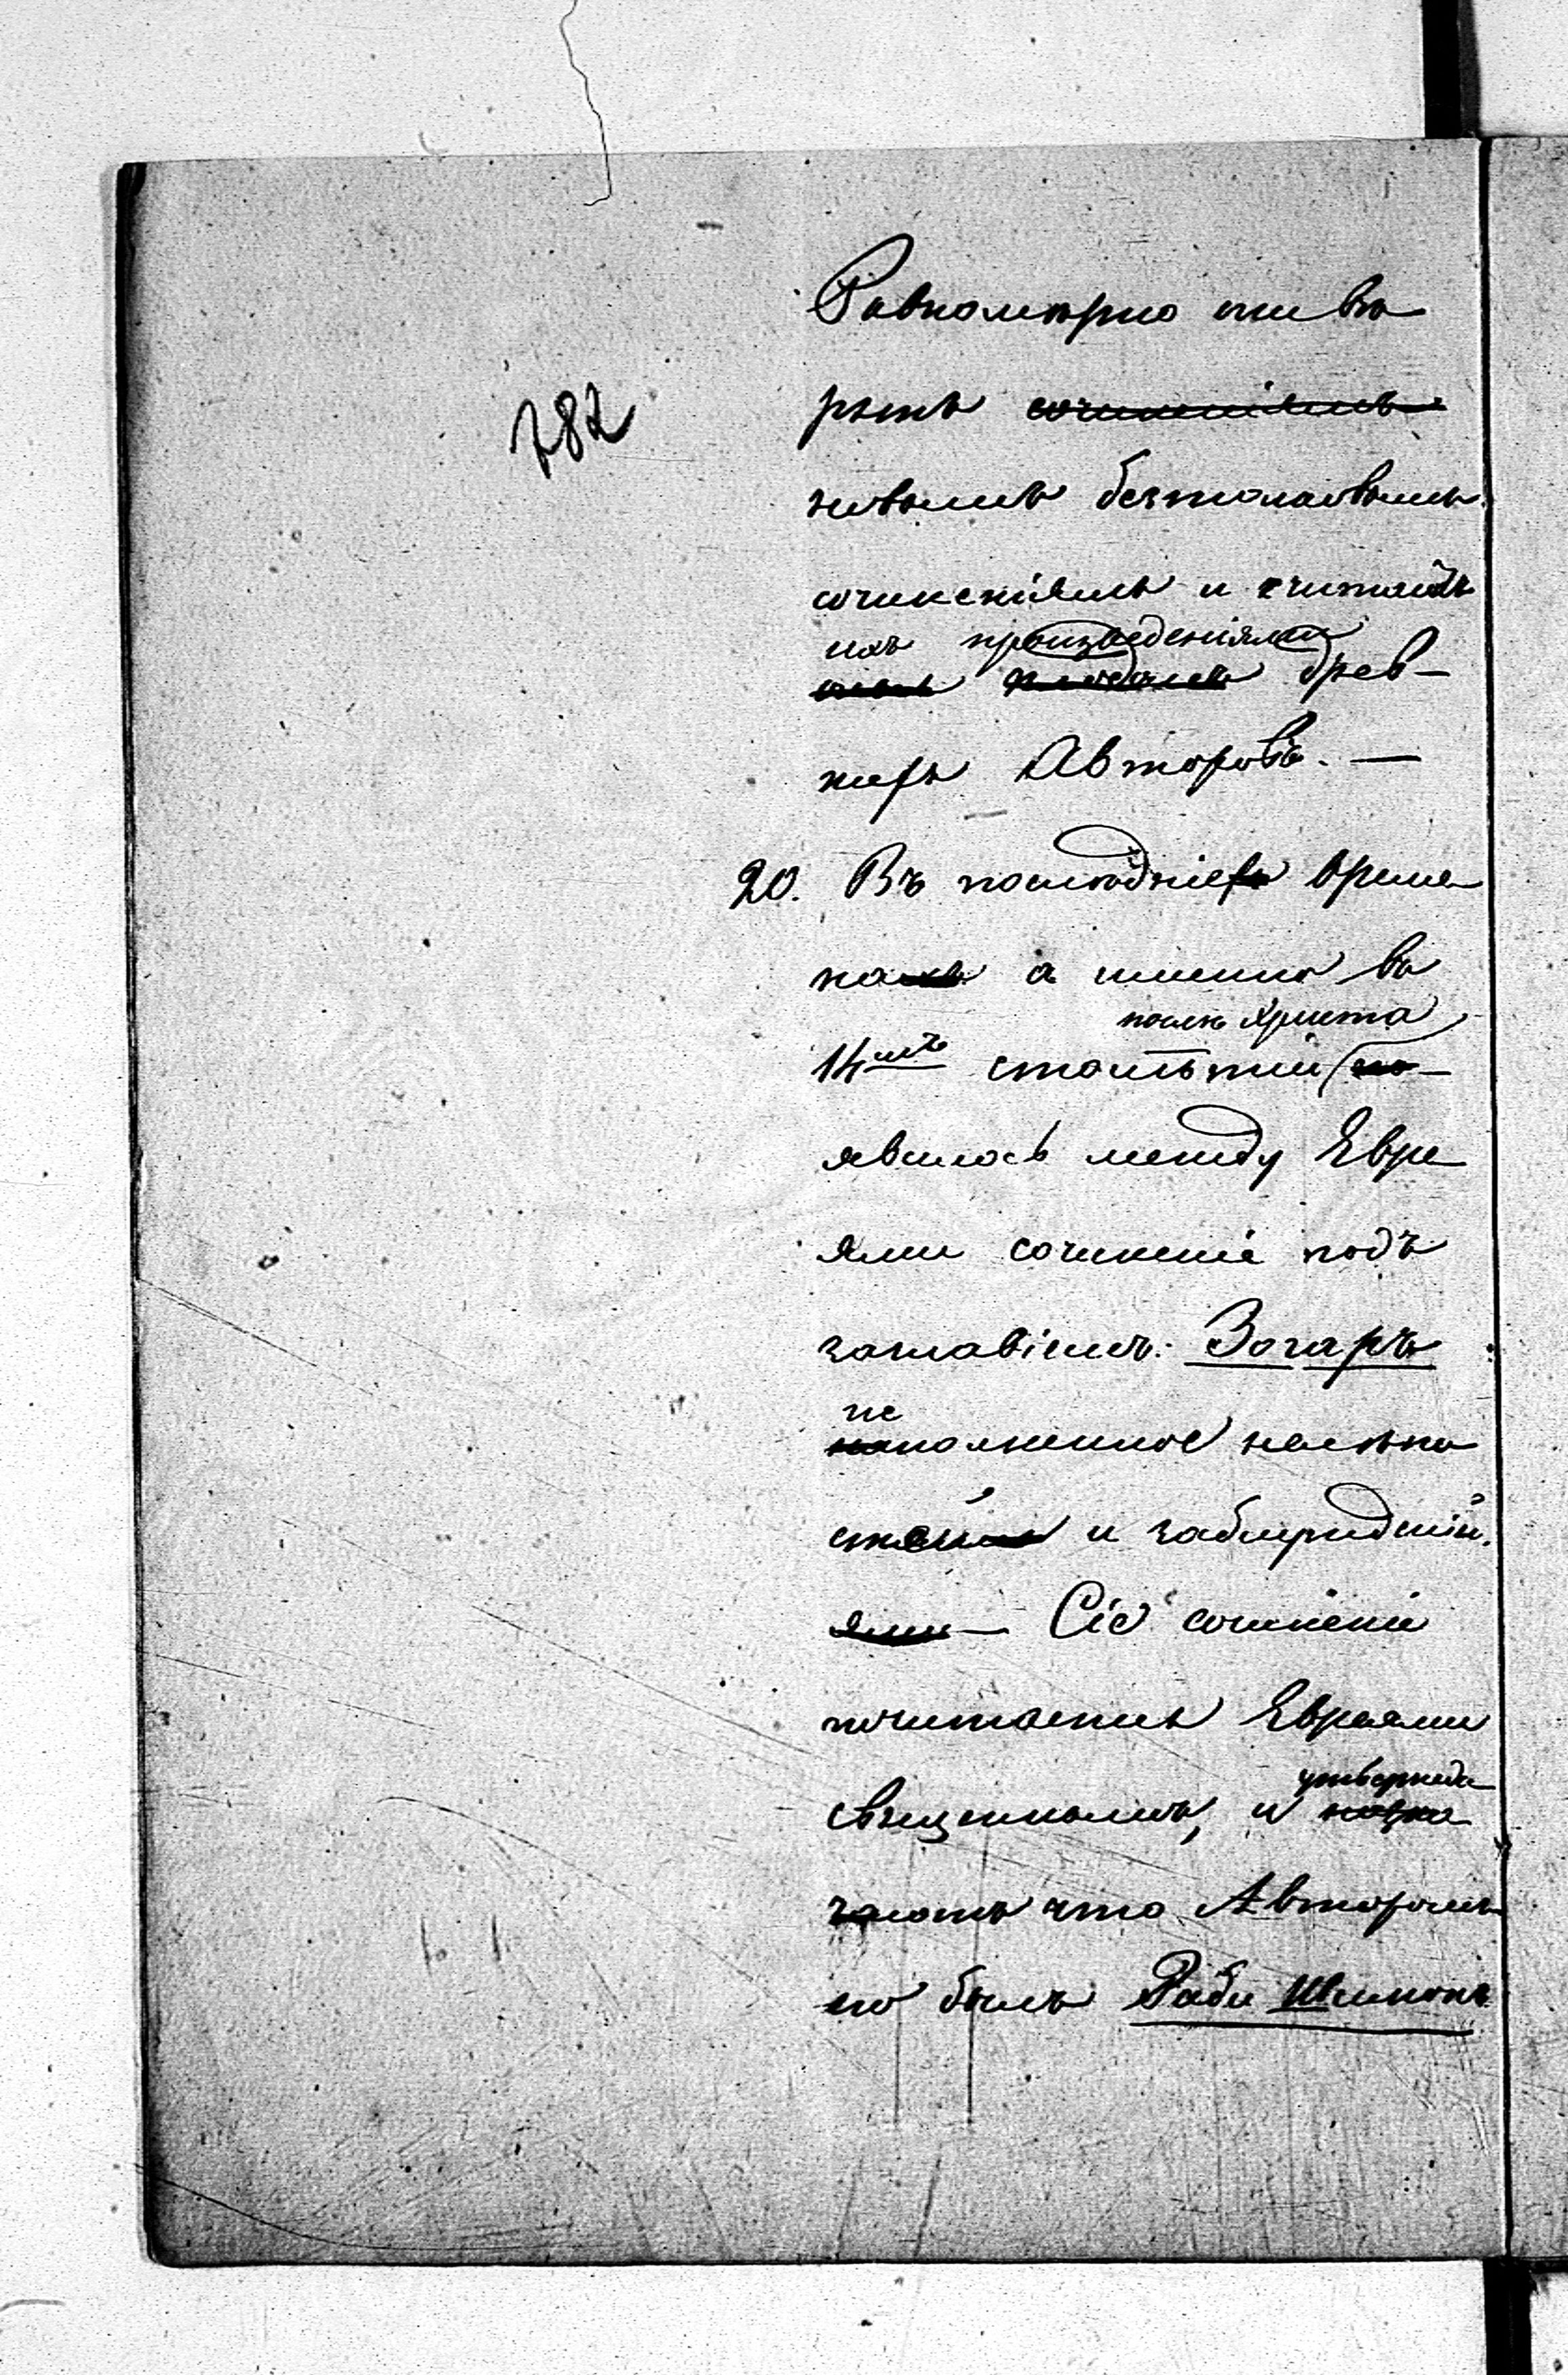 782
Равномѣрно они вѣ
рятъ сочиненіямъ
новымъ безтолковымъ
сочиненіямъ и считаютъ
ихъ произведеніями
древ-
нихъ Авторовъ. —
20. Въ послѣдніехъ време
нахъ а именно въ
послѣ Христа
14мъ столѣтіи по-
явилось между Евре
ями сочиненіе подъ
заглавіемъ: Зогаръ
не
наполненное нелѣпо
стей и заблужденій.
ями — Сіе сочиненіе
почитается Евреями
утвержда
священнымъ, и
ютъ что Авторомъ
его былъ Раби Шимонъ